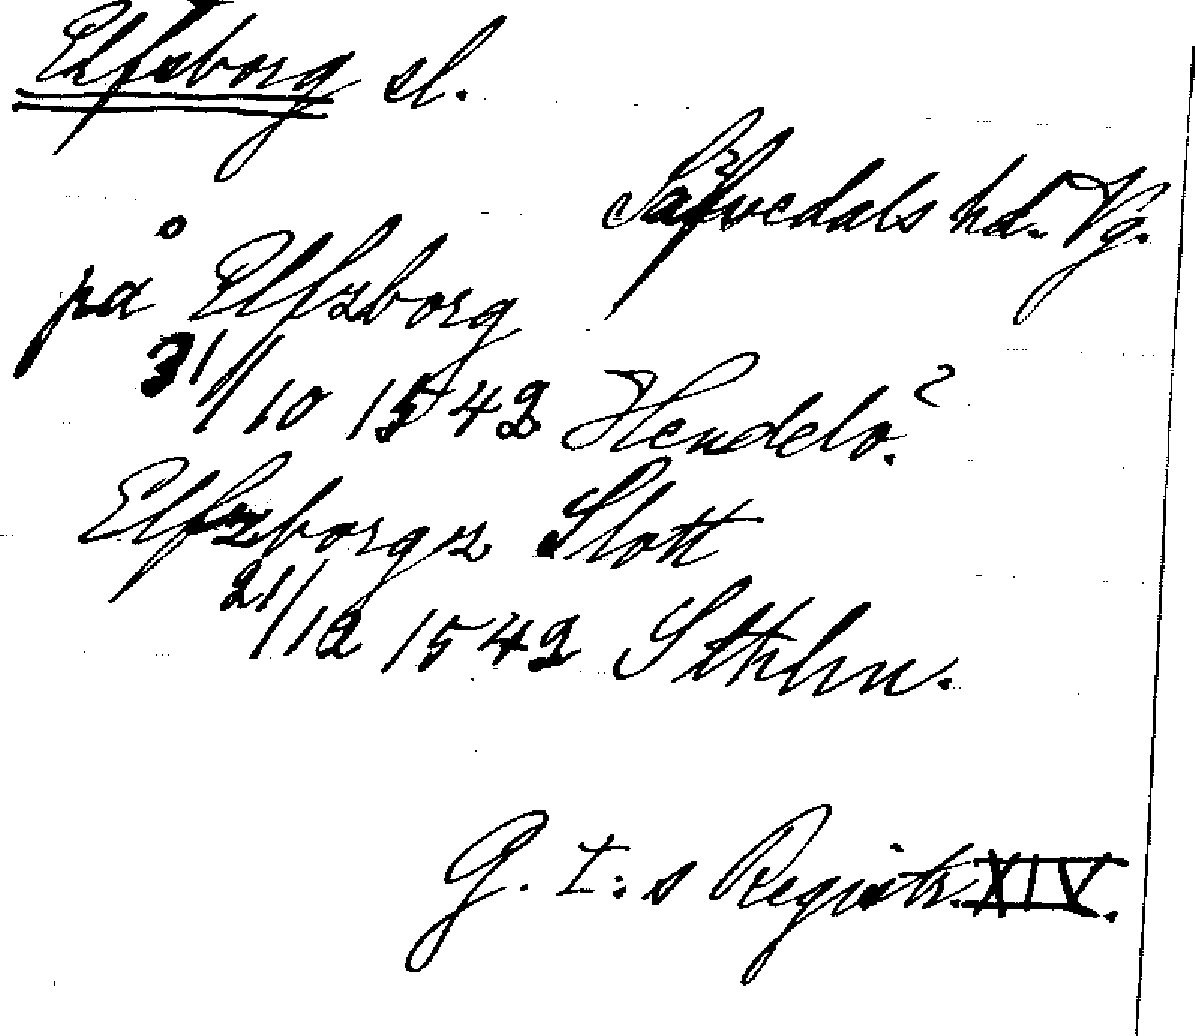 Elfsborg sl.
Säfvedals hd. Vg.
på Elfzborg
31/10 1542 Hendelo.?
Elfzborgz Slott
21/12 1542 Sthlm.
G. I:s Registr. XIV.